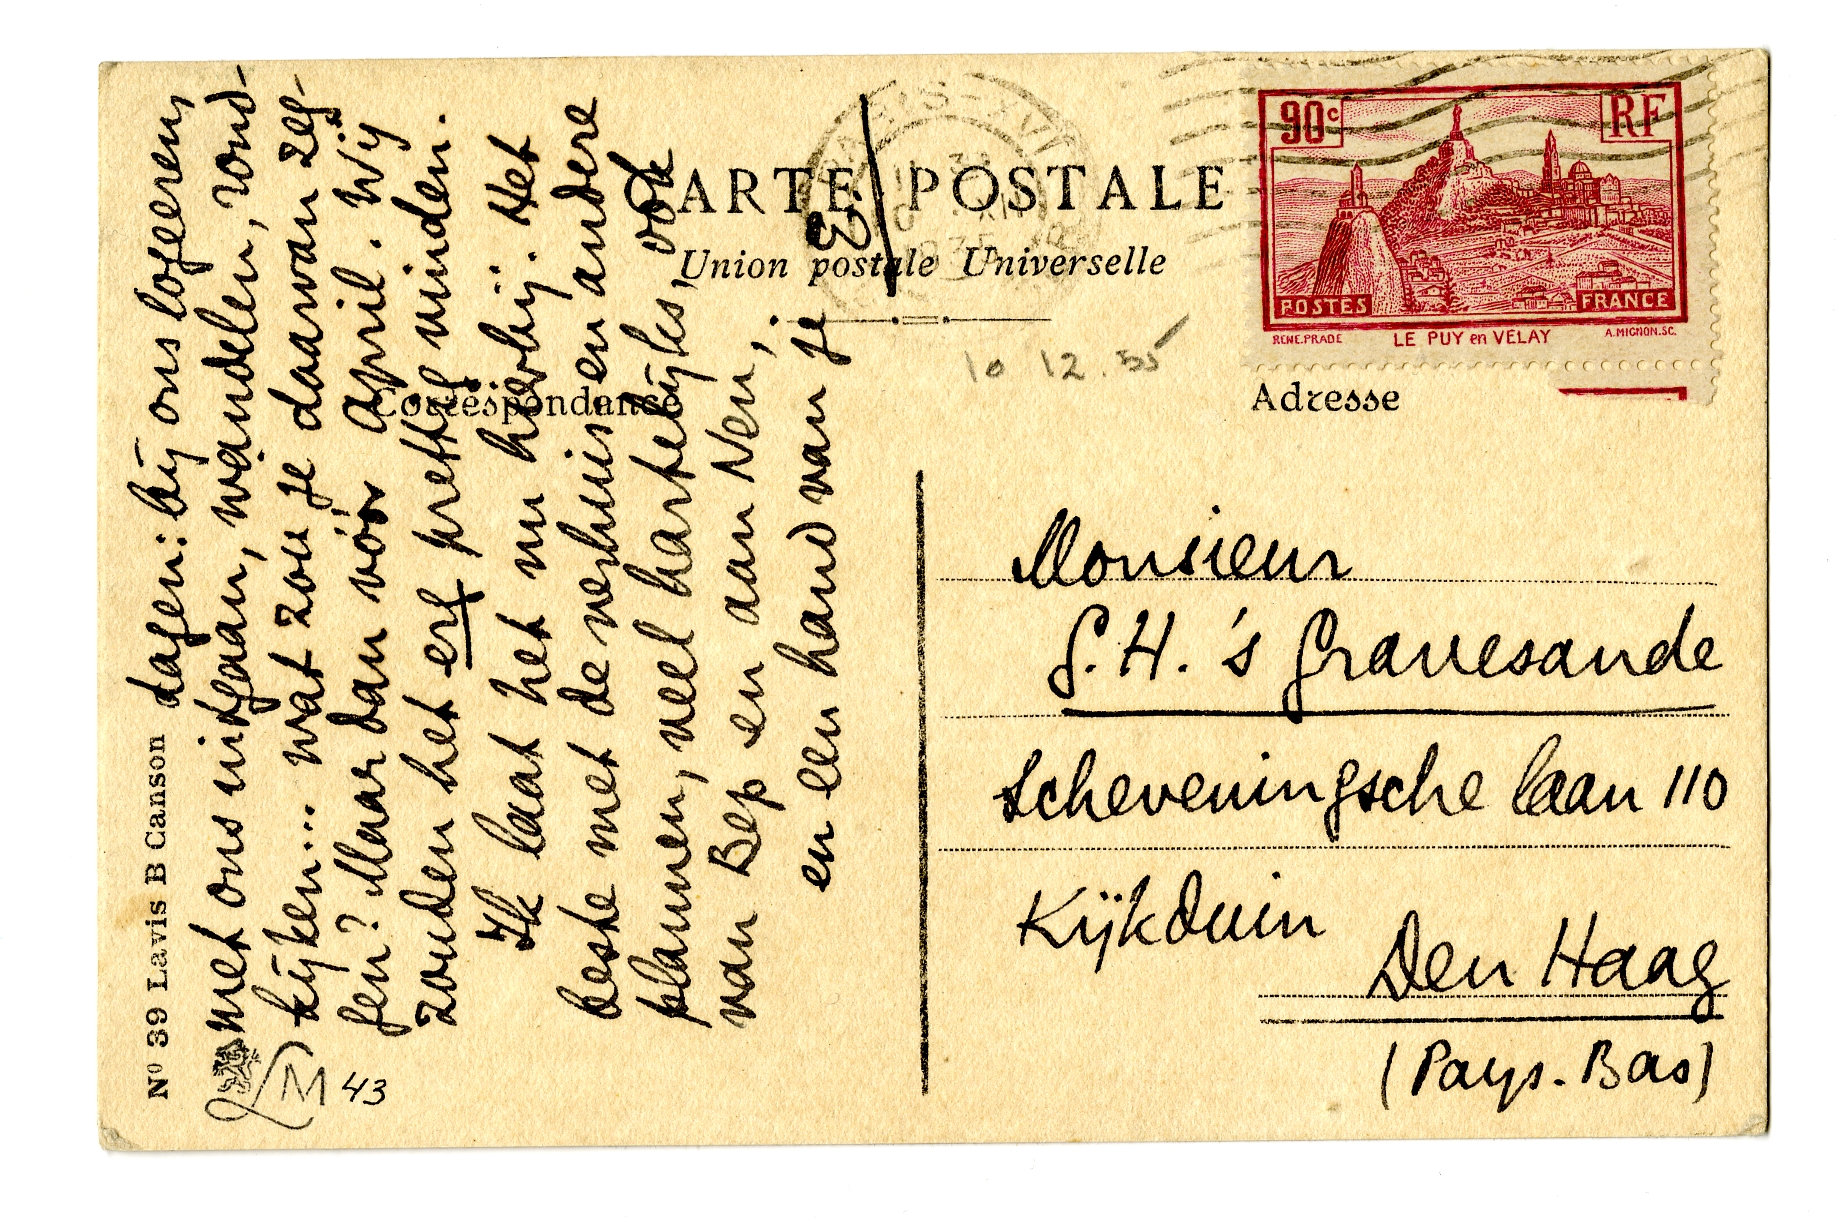 CARTE POSTALE
Union postale Universelle
Correspondance
Adresse
90c
RF
POSTES
FRANCE
RENE.PRADE
LE PUY en VELAY
A.MIGNON.SC.
PARIS-XVI
10 12.35
dagen: bij ons logeeren,
met ons uitgaan, wandelen, rond-
kijken... wat zou je daarvan zeg-
gen? Maar dan vóór April. Wij
zouden het erg prettig vinden.
Ik laat het nu hierbij. Het
beste met de verhuis- en andere
plannen, veel hartelijks, ook
van Bep en aan Nen,
en een hand van je
E
Monsieur
G.H. 's Gravesande
Scheveningsche laan 110
Kijkduin
Den Haag
(Pays-Bas)
No 39 Lavis B Canson
LM 43